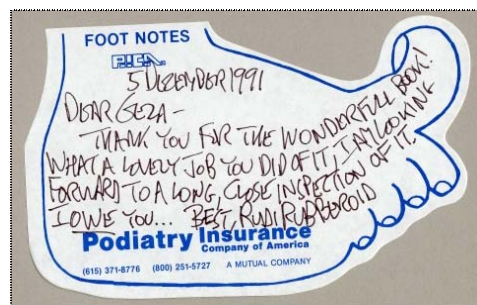 FOOT NOTES
PICA
5 DEZEMBER 1991
DEAR GEZA-
THANK YOU FOR THE WONDERFULL BOOK!
WHAT A LOVELY JOB YOU DID OF IT, I AM LOOKING
FORWARD TO A LONG, CLOSE INSPECTION OF IT.
I OWE YOU... BEST, RUDI RUBBEROID
Podiatry Insurance
Company of America
(615) 371-8776 (800) 251-5727 A MUTUAL COMPANY